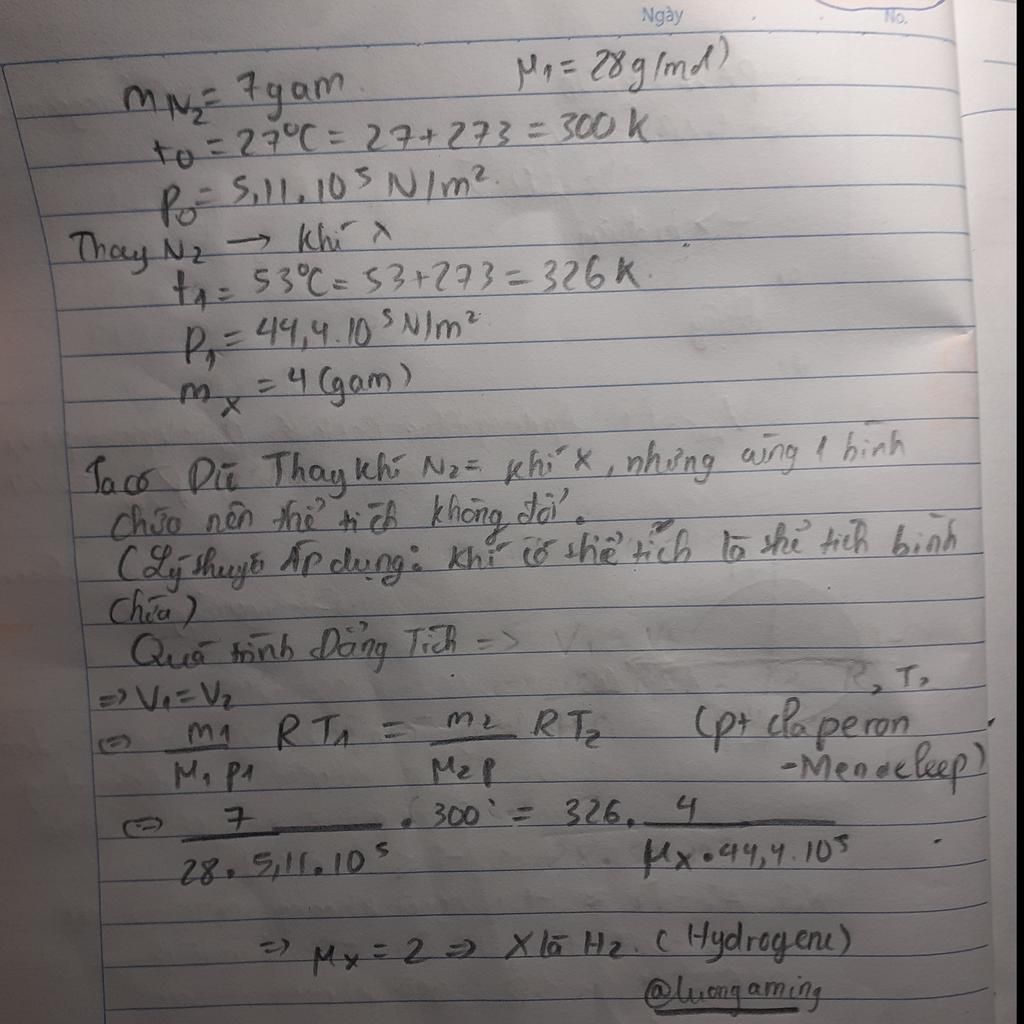 Ngày No.
m N₂ = 7gam μ₁ = 28g/mol)
t₀ = 27°C = 27+273 = 300 K
P₀ = 5,11.10⁵ N/m².
Thay N₂ → khí X
t₁ = 53°C = 53+273 = 326 K.
P₁ = 44,4.10⁵ N/m²
m x = 4 (gam)
Ta có Dù Thay khí N₂ = khí X, nhưng cùng 1 bình
chứa nên thể tích không đổi.
(Lý thuyết Áp dụng: khí có thể tích là thể tích bình
chứa)
Quá trình Đẳng Tích =>
=> V₁ = V₂
<=> m₁/(μ₁ p₁) R T₁ = m₂/(μ₂ p) R T₂ (pt claperon
-Mendeleep)
<=> 7/(28. 5,11.10⁵) . 300 = 326. 4/(μx.44,4.10⁵)
=> μx = 2 => X là H₂. (Hydrogene)
@luongaming